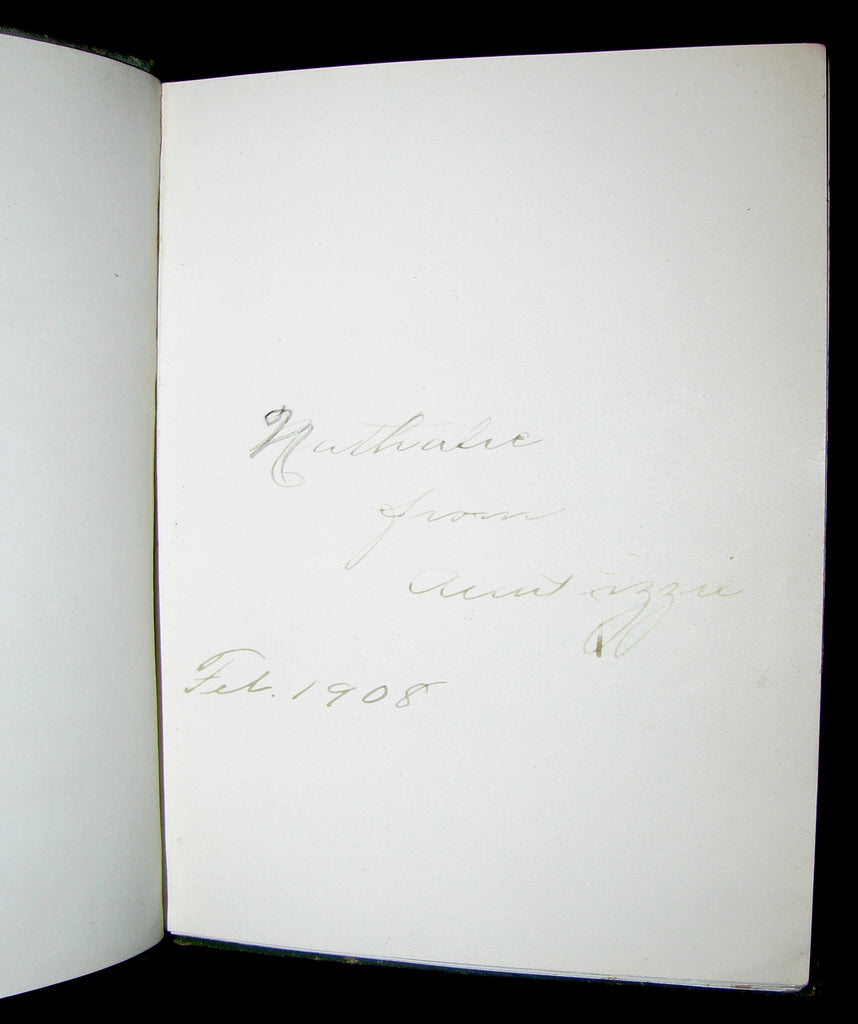 Nathalie
from
Aunt Izzie
Feb. 1908